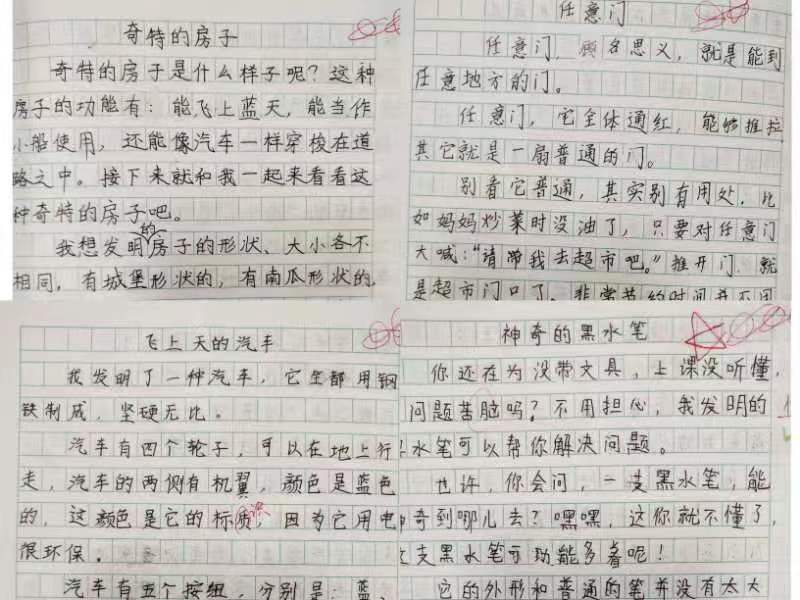 奇特的房子
奇特的房子是什么样子呢？这种
房子的功能有：能飞上蓝天，能当作
小船使用，还能像汽车一样穿梭在道
路之中。接下来就和我一起来看看这
种奇特的房子吧。
我想发明的房子的形状、大小各不
相同，有城堡形状的，有南瓜形状的，
任意门
任意门，顾名思义，就是能到
任意地方的门。
任意门，它全体通红，能够推拉
其它就是一扇普通的门。
别看它普通，其实别有用处，比
如妈妈炒菜时没油了，只要对任意门
大喊：“请带我去超市吧。”推开门，就
是超市门口了。非常节约时间并不用
飞上天的汽车
我发明了一种汽车，它全部用钢
铁制成，坚硬无比。
汽车有四个轮子，可以在地上行
走，汽车的两侧有机翼，颜色是蓝色
的，这颜色是它的标，因为它用电
很环保。
汽车有五个按钮，分别是：蓝、
神奇的黑水笔
你还在为没带文具，上课没听懂，
问题苦脑吗？不用担心，我发明的
水笔可以帮你解决问题。
也许，你会问，一支黑水笔，能
奇到哪儿去？嘿嘿，这你就不懂了，
支黑水笔可功能多着呢！
它的外形和普通的笔并没有太大